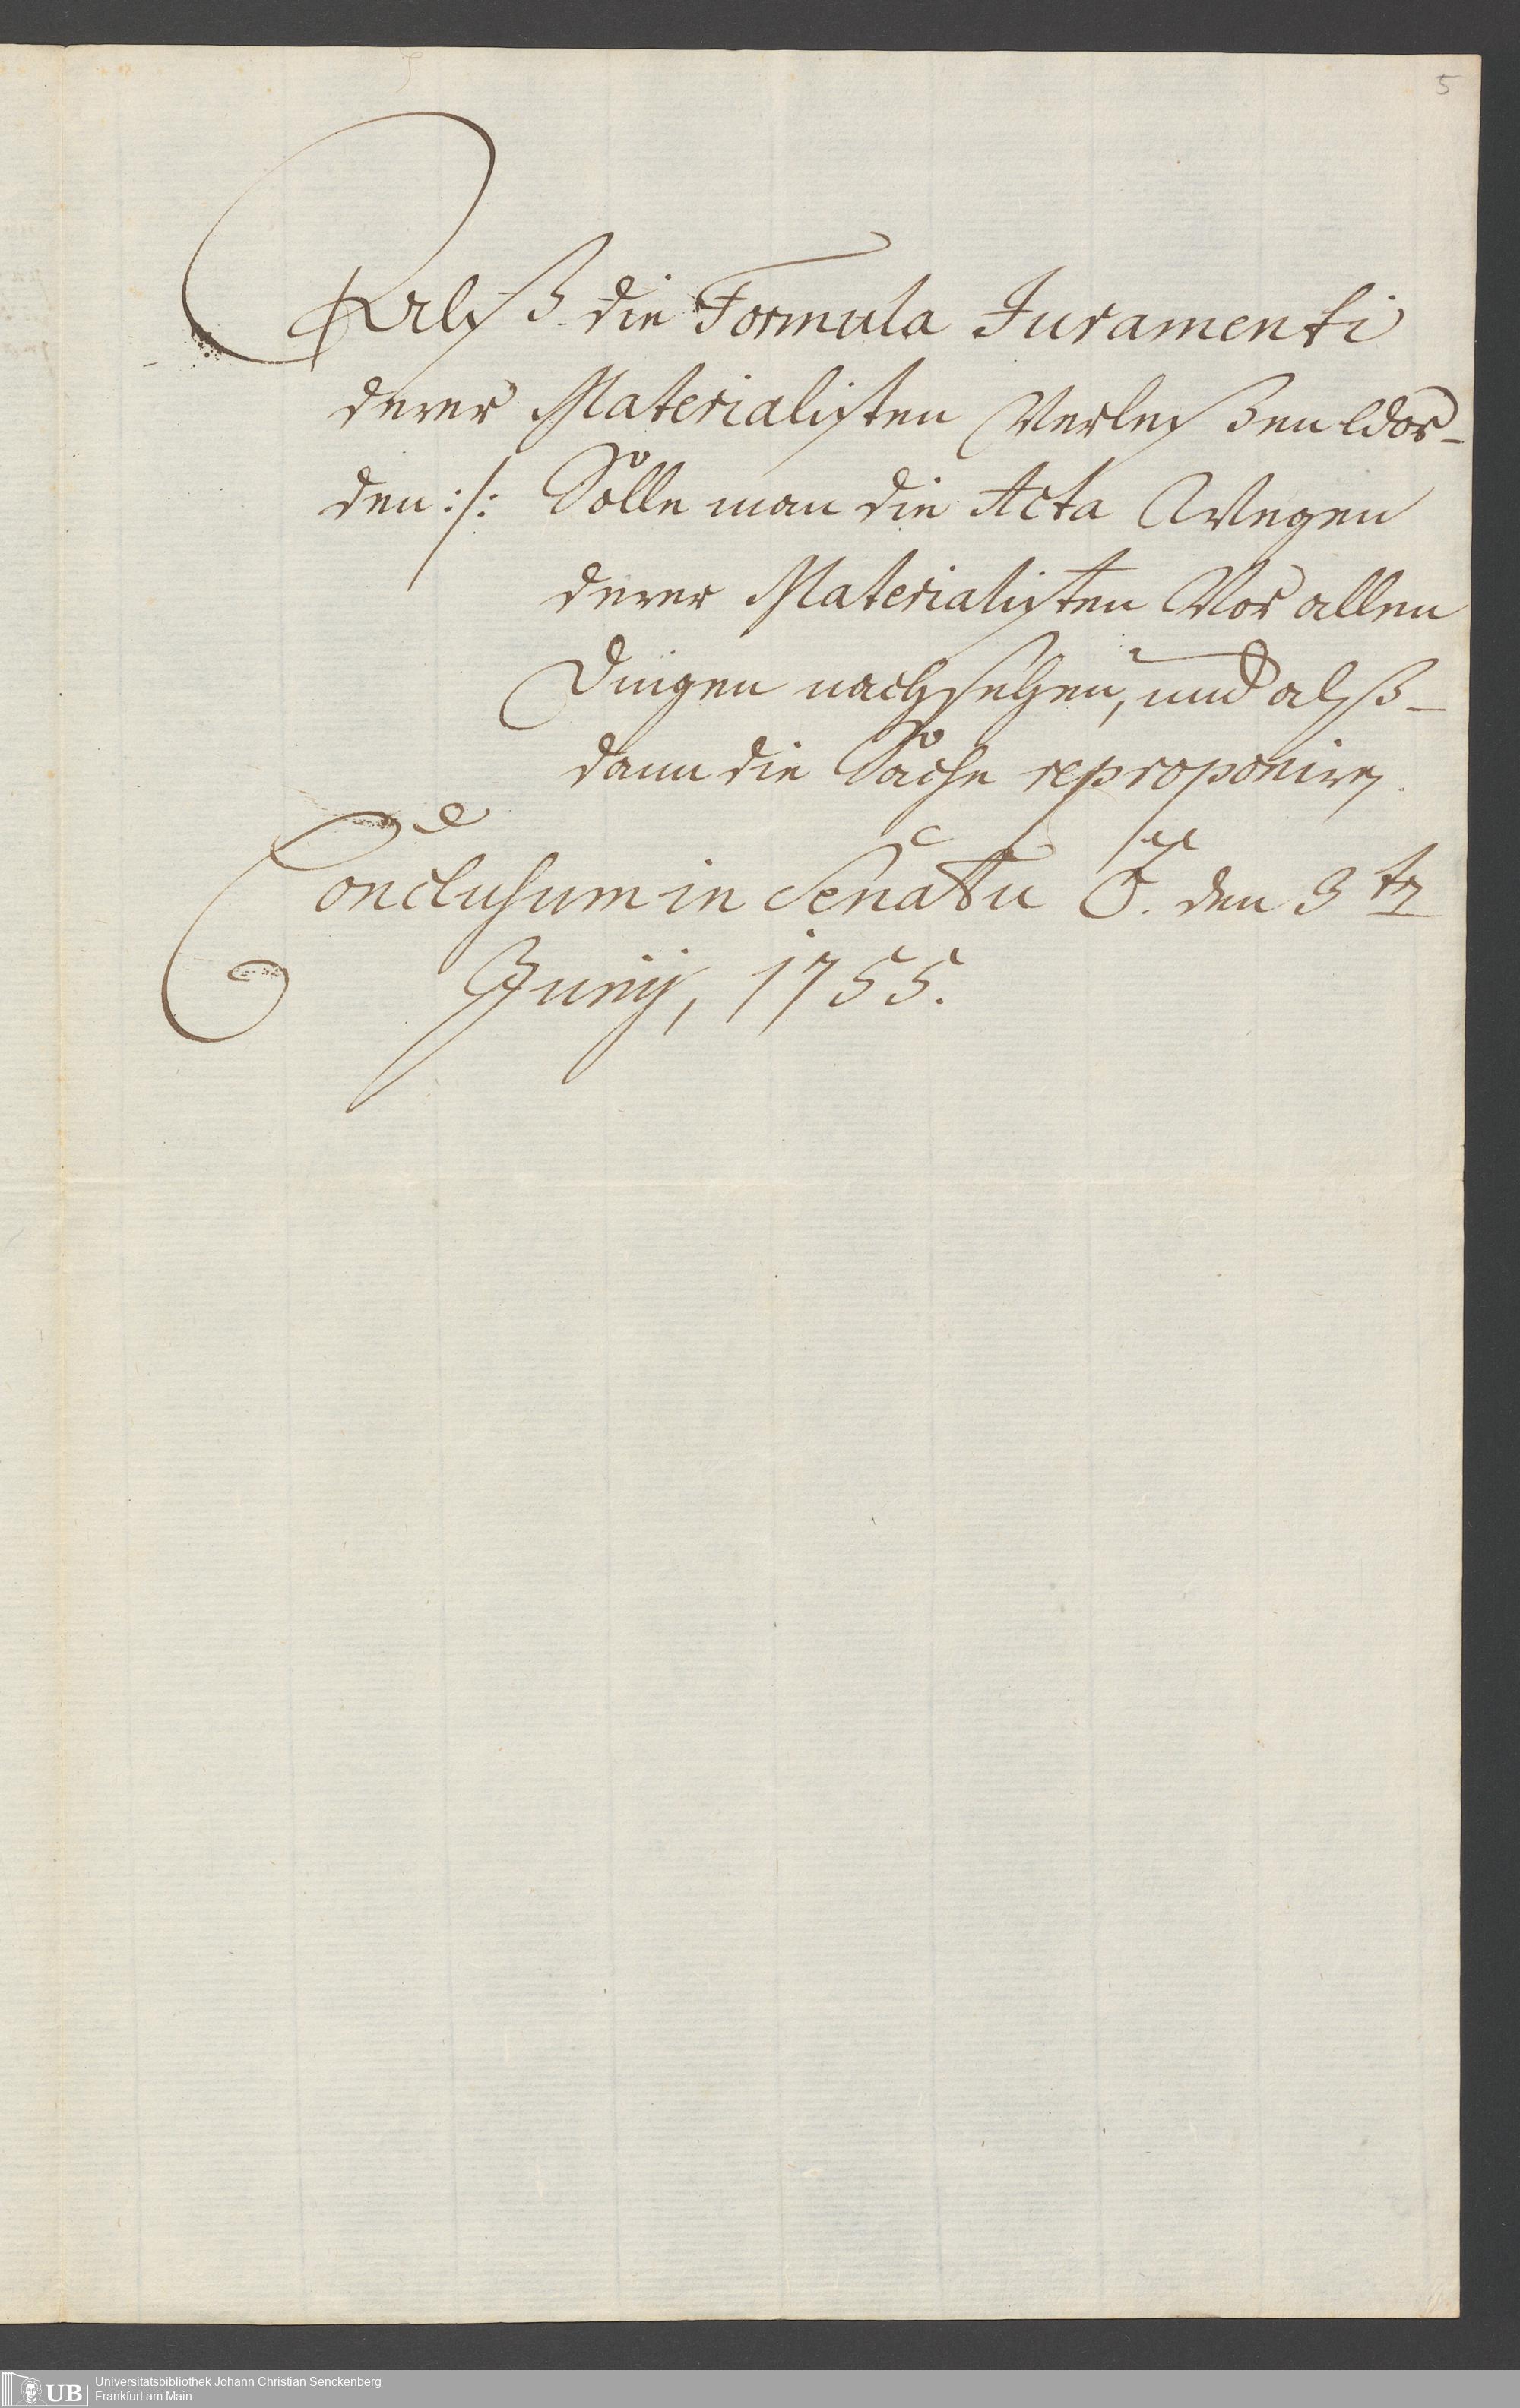 5
Alß die Formula Juramenti
derer Materialisten Verleßen wor-
den :/: Solle man die Acta Wegen
derer Materialisten Vor allen
Dingen nachsehen, und alß-
dann die Sache reproponiren.
Conclusum in Senatu den 3ten
Junij, 1755.
UB
Universitätsbibliothek Johann Christian Senckenberg
Frankfurt am Main